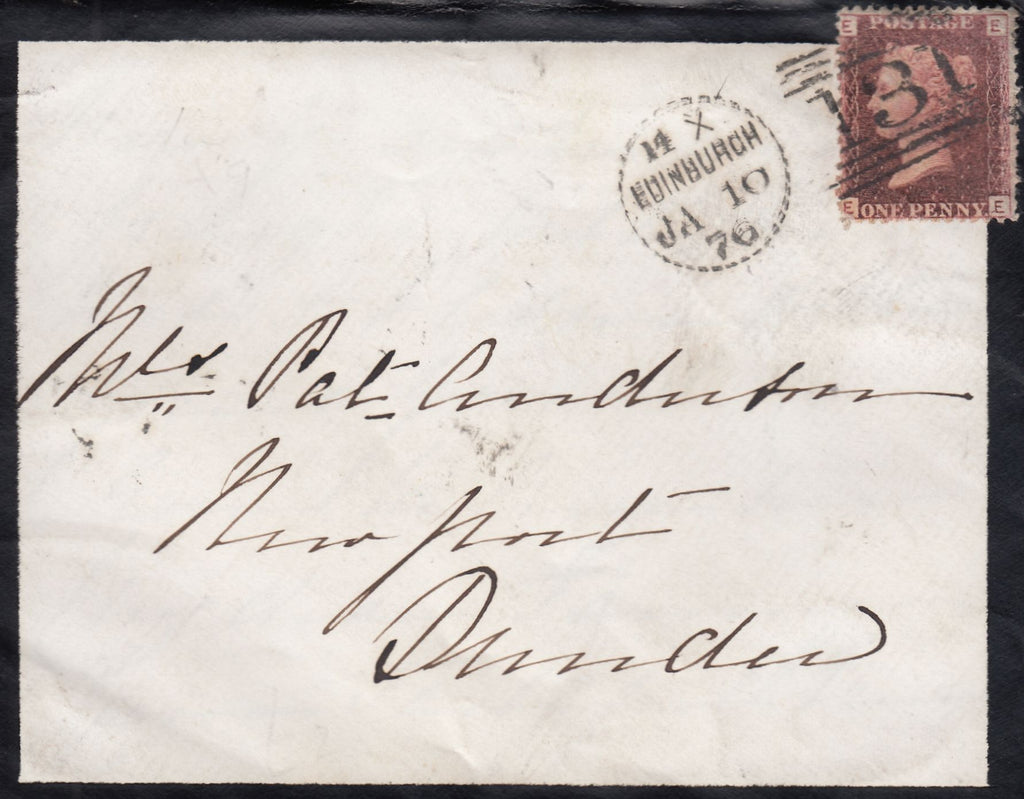 E POSTAGE E
131
E ONE PENNY E
14 X
EDINBURGH
JA 10
76
Mrs Pat Anderson
Newport
Dundee